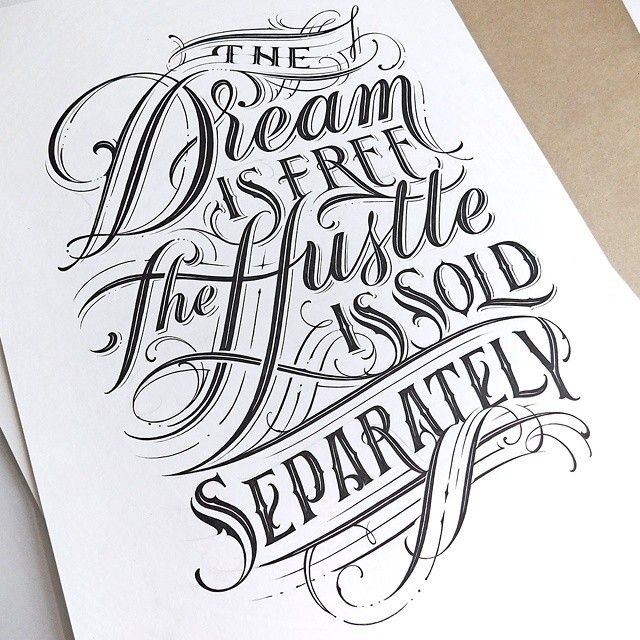 THE
Dream
IS FREE
The Hustle
IS SOLD
SEPARATELY